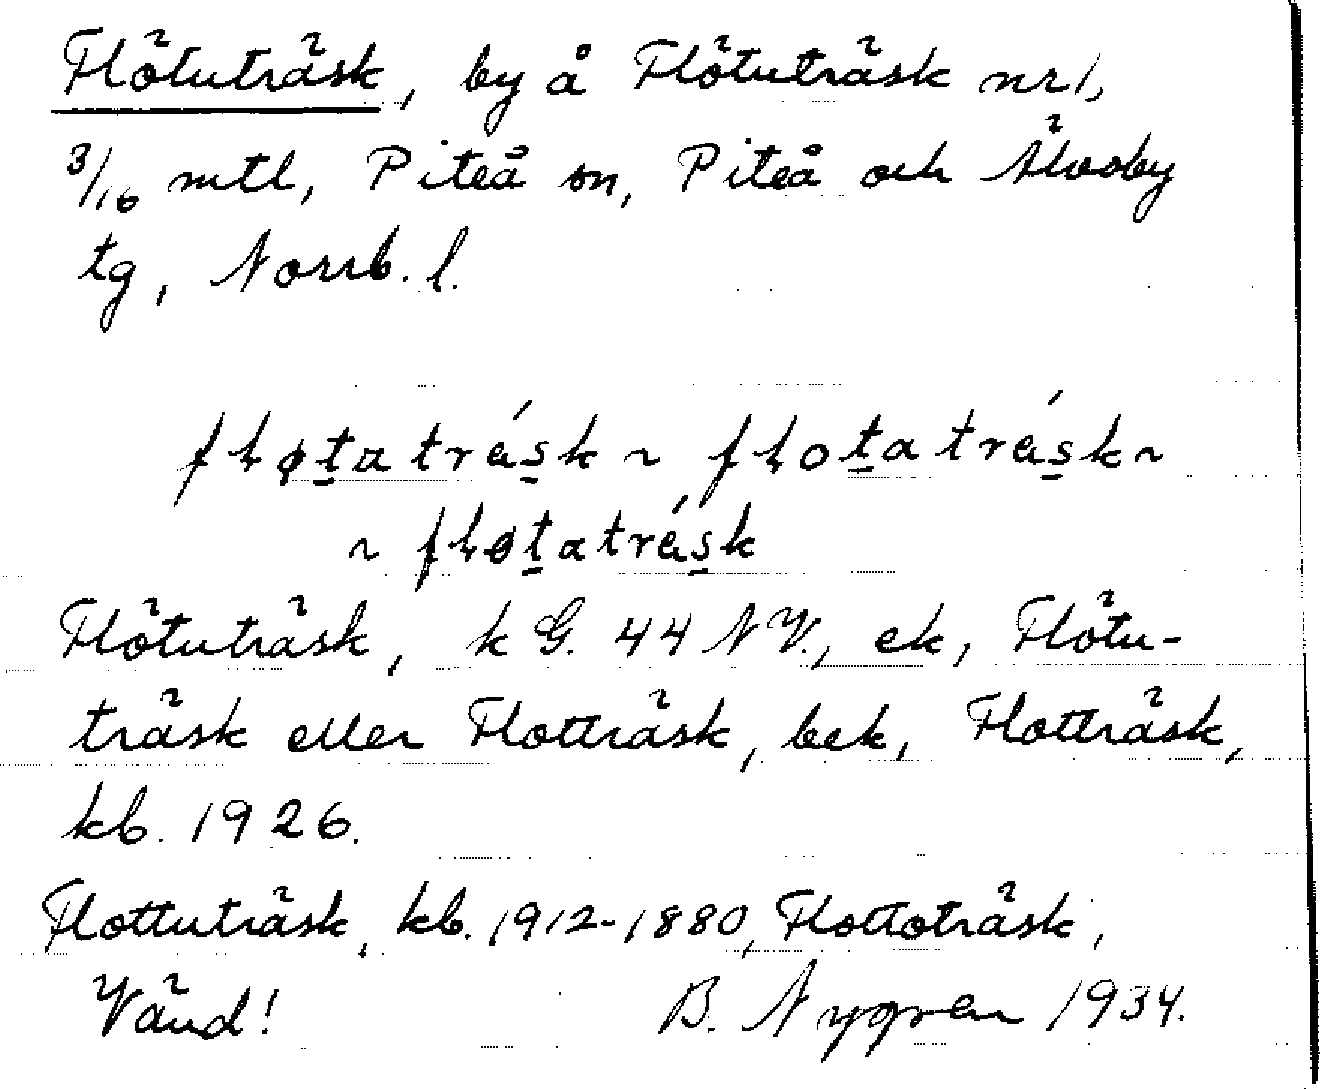 Flötuträsk, by å Flötuträsk nr 1,
3/16 mtl, Piteå sn, Piteå och Älvsby
tg, Norrb. l.
fløtaträsk ~ flotaträsk ~
~ fløtaträsk
Flötuträsk, k G. 44 NV., ek, Flötu-
träsk eller Flotträsk, bek, Flotträsk,
kb. 1926.
Flottuträsk, kb. 1912-1880, Flottoträsk,
Vänd! B. Nygren 1934.